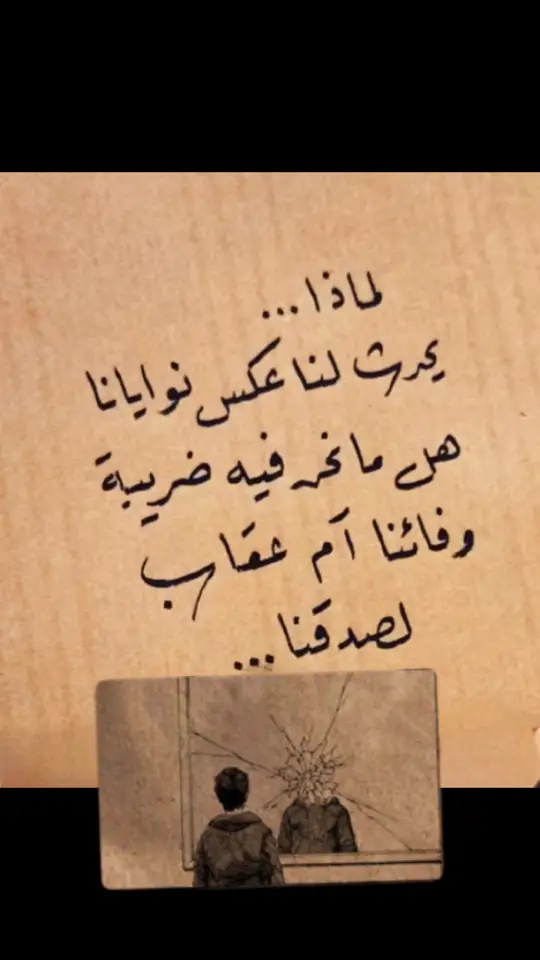 لماذا...
يحدث لنا عكس نوايانا
هل ما نحن فيه ضريبة
وفائنا آم عقاب
لصدقنا...